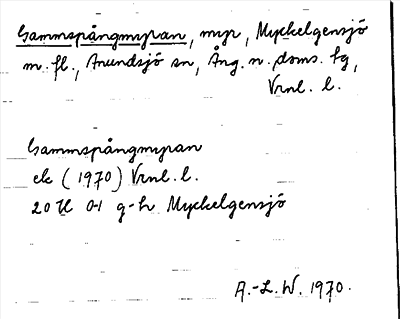 Gammspångmyran, myr, Myckelgensjö
m. fl., Anundsjö sn, Ång. n. doms. fg,
Vrnl. l.
Gammspångmyran
ek (1970) Vrnl. l.
20H 0-1 g-h Myckelgensjö
A.-L. W. 1970.